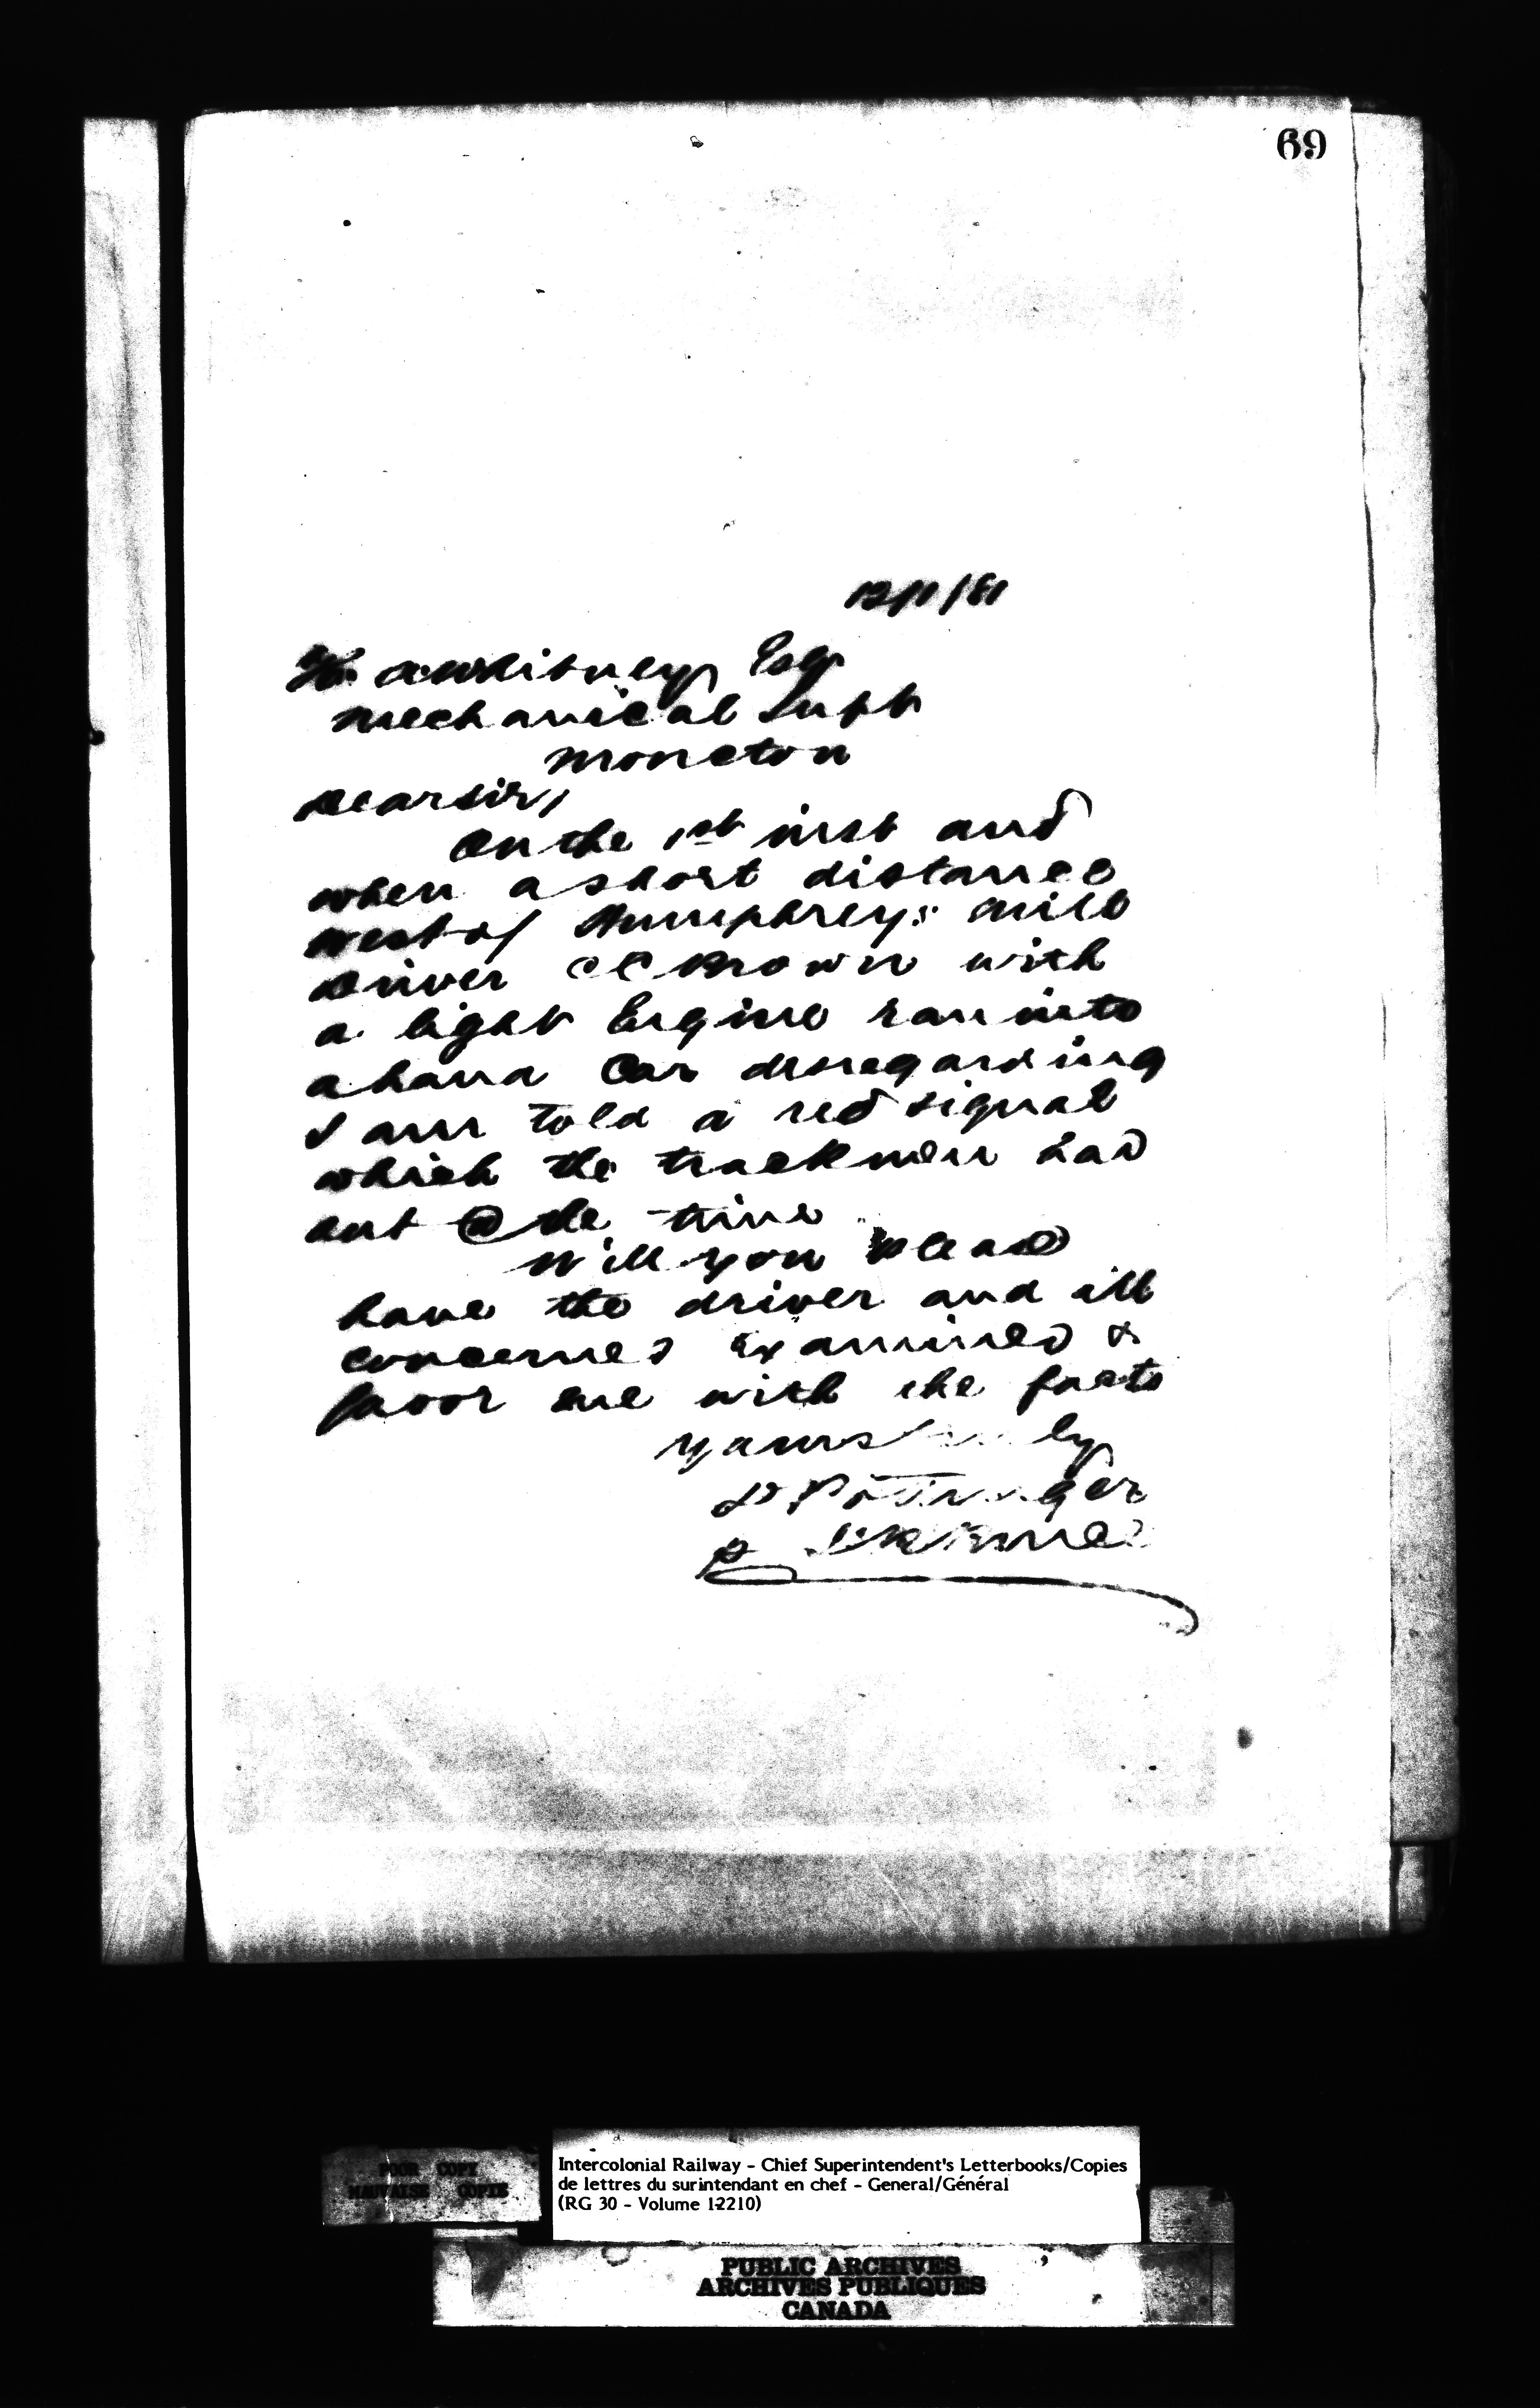 69
12/11/81
H. A. Whitney Esq
Mechanical Supt
Moncton
Dear Sir,
On the 1st inst and
when a short distance
west of Humphreys mill
Driver C C Brown with
a light Engine ran into
a hand Car disregarding
I am told a red signal
which the trackmen had
out @ the time
Will you please
have the driver and all
concerned Examined &
favor me with the facts
Yours truly
D Pottinger
POOR COPY
MAUVAISE COPIE
Intercolonial Railway - Chief Superintendent's Letterbooks/Copies
de lettres du surintendant en chef - General/Général
(RG 30 - Volume 12210)
PUBLIC ARCHIVES
ARCHIVES PUBLIQUES
CANADA